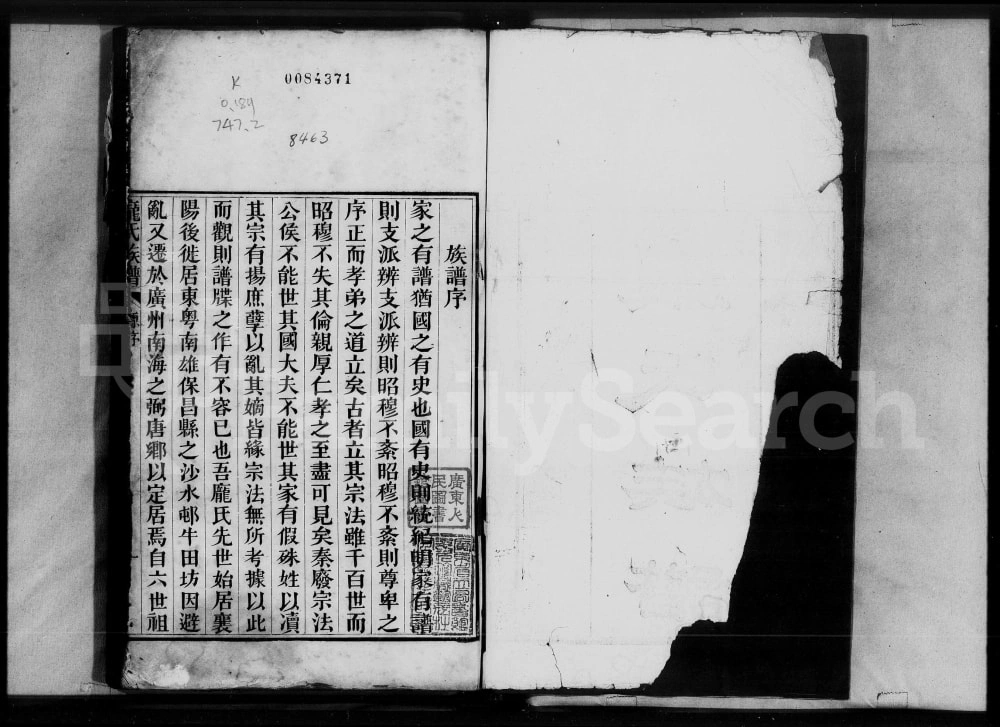 K
0.189
747.2
0084371
8463
族譜序
家之有譜猶國之有史也國有史則統緒明家有譜
則支派辨支派辨則昭穆不紊昭穆不紊則尊卑之
序正而孝弟之道立矣古者立其宗法雖千百世而
昭穆不失其倫親厚仁孝之至盡可見矣秦廢宗法
公侯不能世其國大夫不能世其家有假殊姓以瀆
其宗有揚庶孽以亂其嫡皆緣宗法無所考據以此
而觀則譜牒之作有不容已也吾龐氏先世始居襄
陽後徙居東粵南雄保昌縣之沙水邨牛田坊因避
亂又遷於廣州南海之弼唐鄉以定居焉自六世祖
龐氏族譜
廣東人
民圖書
FamilySearch